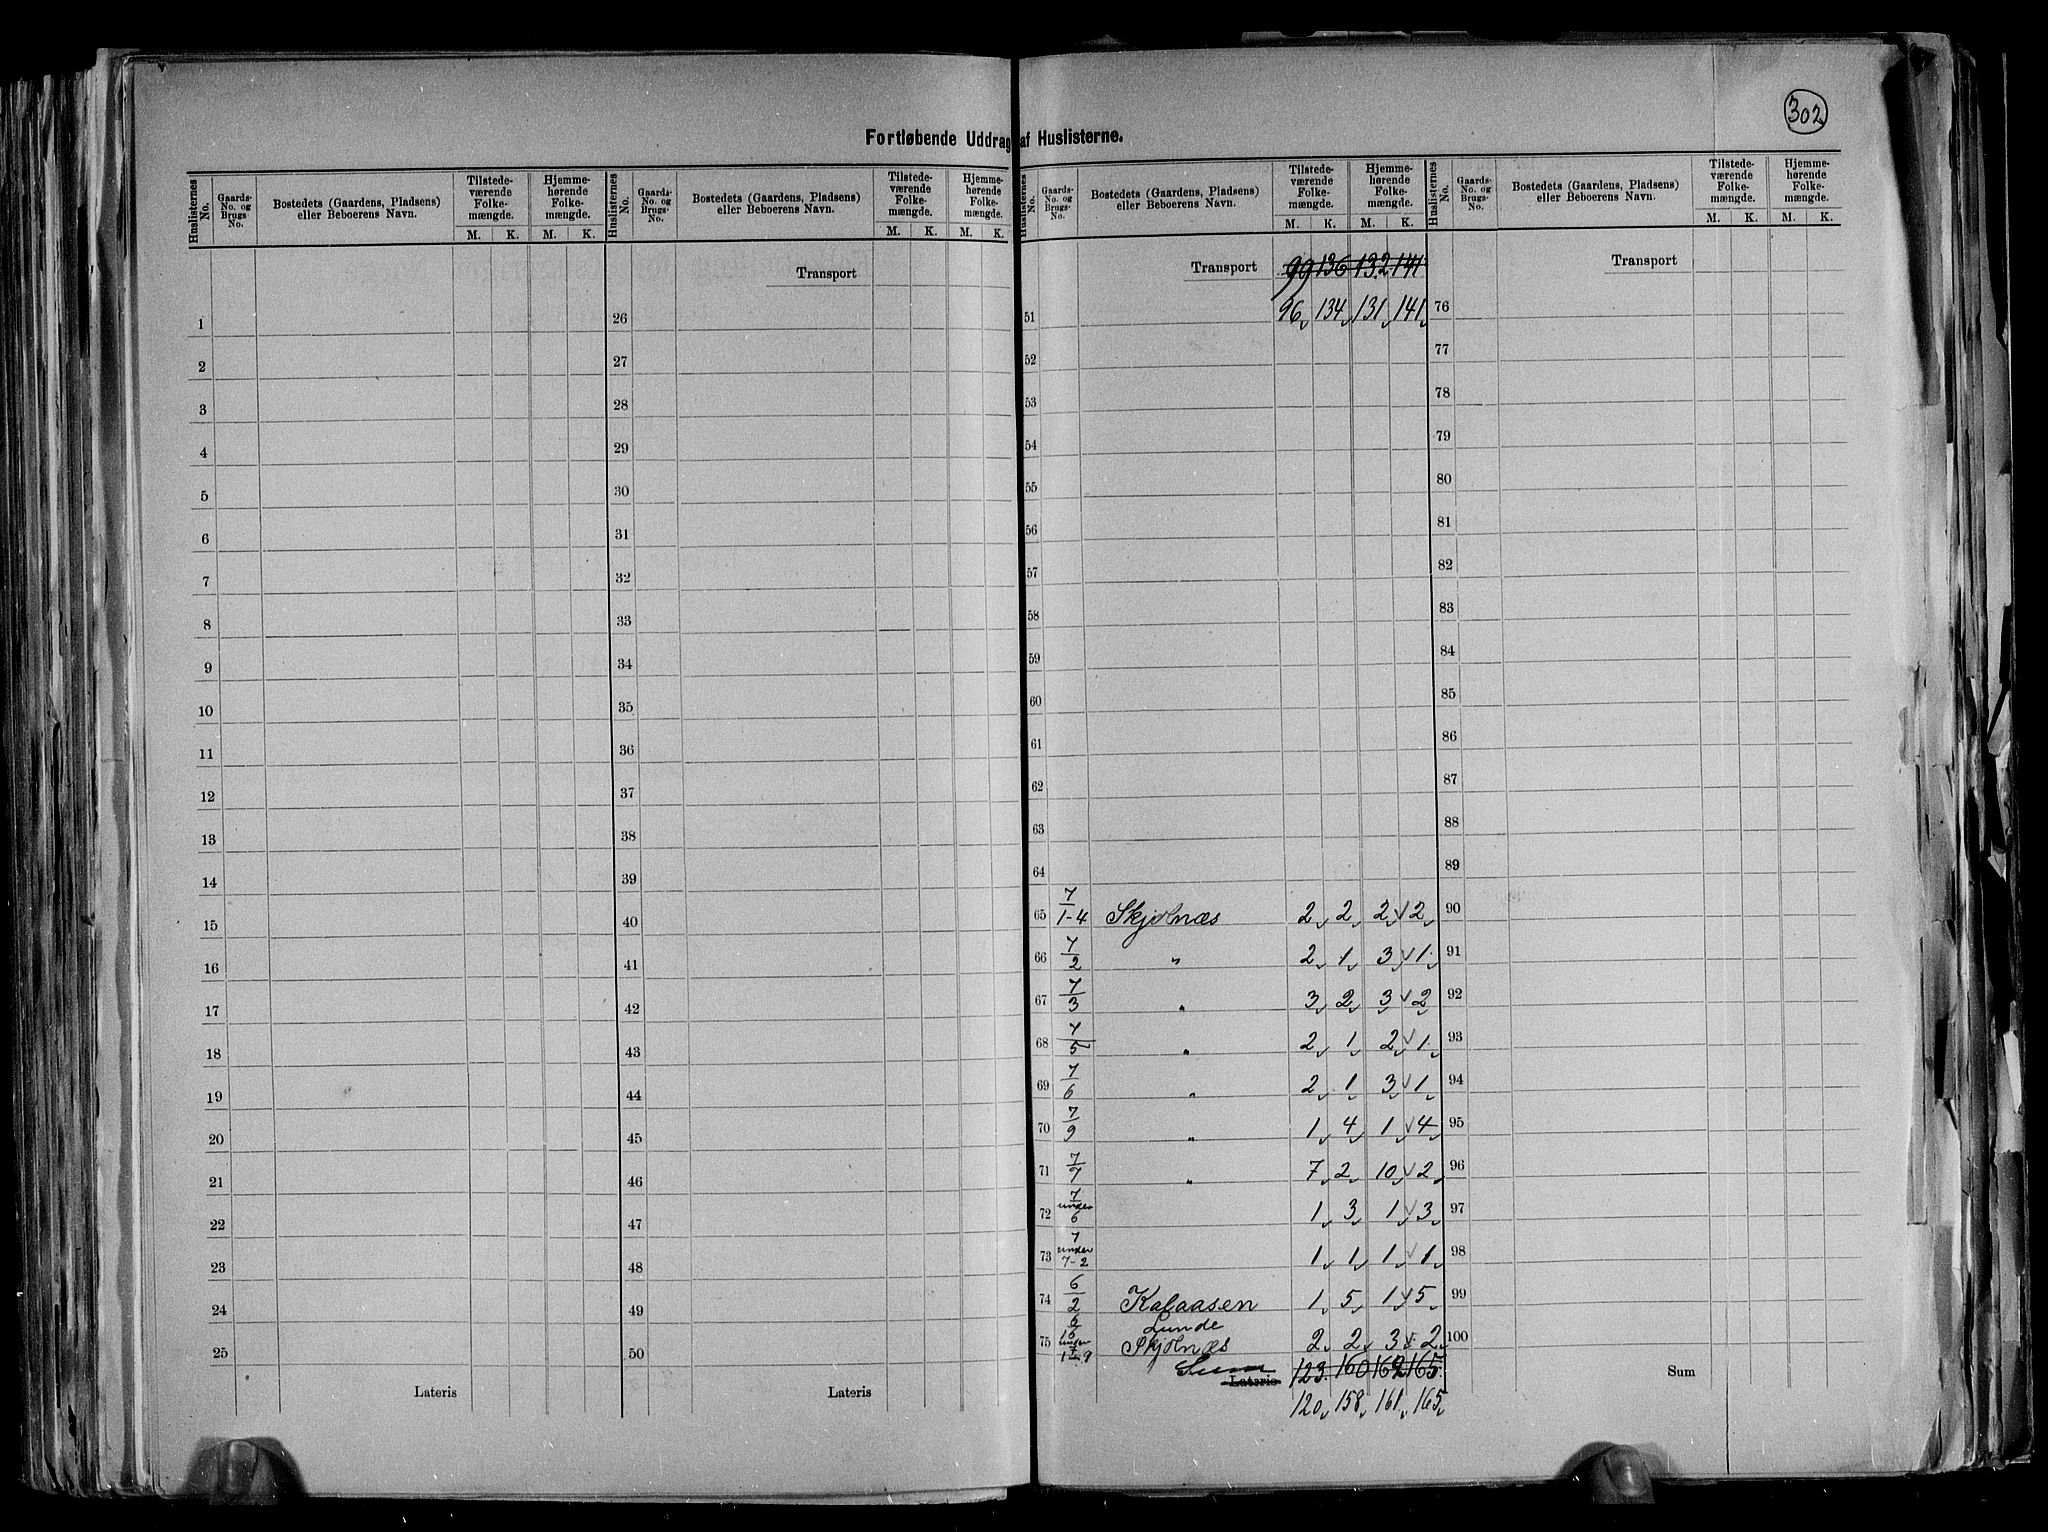 302
Fortløbende Uddrag af Huslisterne.
Huslisternes No. | Gaards-No. og Brugs-No. | Bostedets (Gaardens, Pladsens) eller Beboerens Navn. | Tilstedeværende Folkemængde. M. K. | Hjemmehørende Folkemængde. M. K.
Huslisternes No. | Gaards-No. og Brugs-No. | Bostedets (Gaardens, Pladsens) eller Beboerens Navn. | Tilstedeværende Folkemængde. M. K. | Hjemmehørende Folkemængde. M. K.
Huslisternes No. | Gaards-No. og Brugs-No. | Bostedets (Gaardens, Pladsens) eller Beboerens Navn. | Tilstedeværende Folkemængde. M. K. | Hjemmehørende Folkemængde. M. K.
Huslisternes No. | Gaards-No. og Brugs-No. | Bostedets (Gaardens, Pladsens) eller Beboerens Navn. | Tilstedeværende Folkemængde. M. K. | Hjemmehørende Folkemængde. M. K.
1
2
3
4
5
6
7
8
9
10
11
12
13
14
15
16
17
18
19
20
21
22
23
24
25
Lateris
Transport
26
27
28
29
30
31
32
33
34
35
36
37
38
39
40
41
42
43
44
45
46
47
48
49
50
Lateris
Transport 99 136 132 141
51 96 134 131 141
52
53
54
55
56
57
58
59
60
61
62
63
64
65 7/1-4 Skjolnæs 2 2 2 2
66 7/2 " 2 1 3 1
67 7/3 " 3 2 3 2
68 7/5 " 2 1 2 1
69 7/6 " 2 1 3 1
70 7/9 " 1 4 1 4
71 7/7 " 7 2 10 2
72 7/under 6 1 3 1 3
73 7/under 7-2 1 1 1 1
74 6/2 Kalaasen 1 5 1 5
Lunde
75 Skjolnæs 2 2 3 2
Sum
Lateris 123 160 162 165
120 158 161 165
Transport
76
77
78
79
80
81
82
83
84
85
86
87
88
89
90
91
92
93
94
95
96
97
98
99
100
Sum